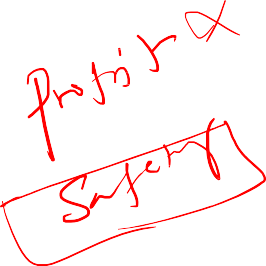 Profit
Safety